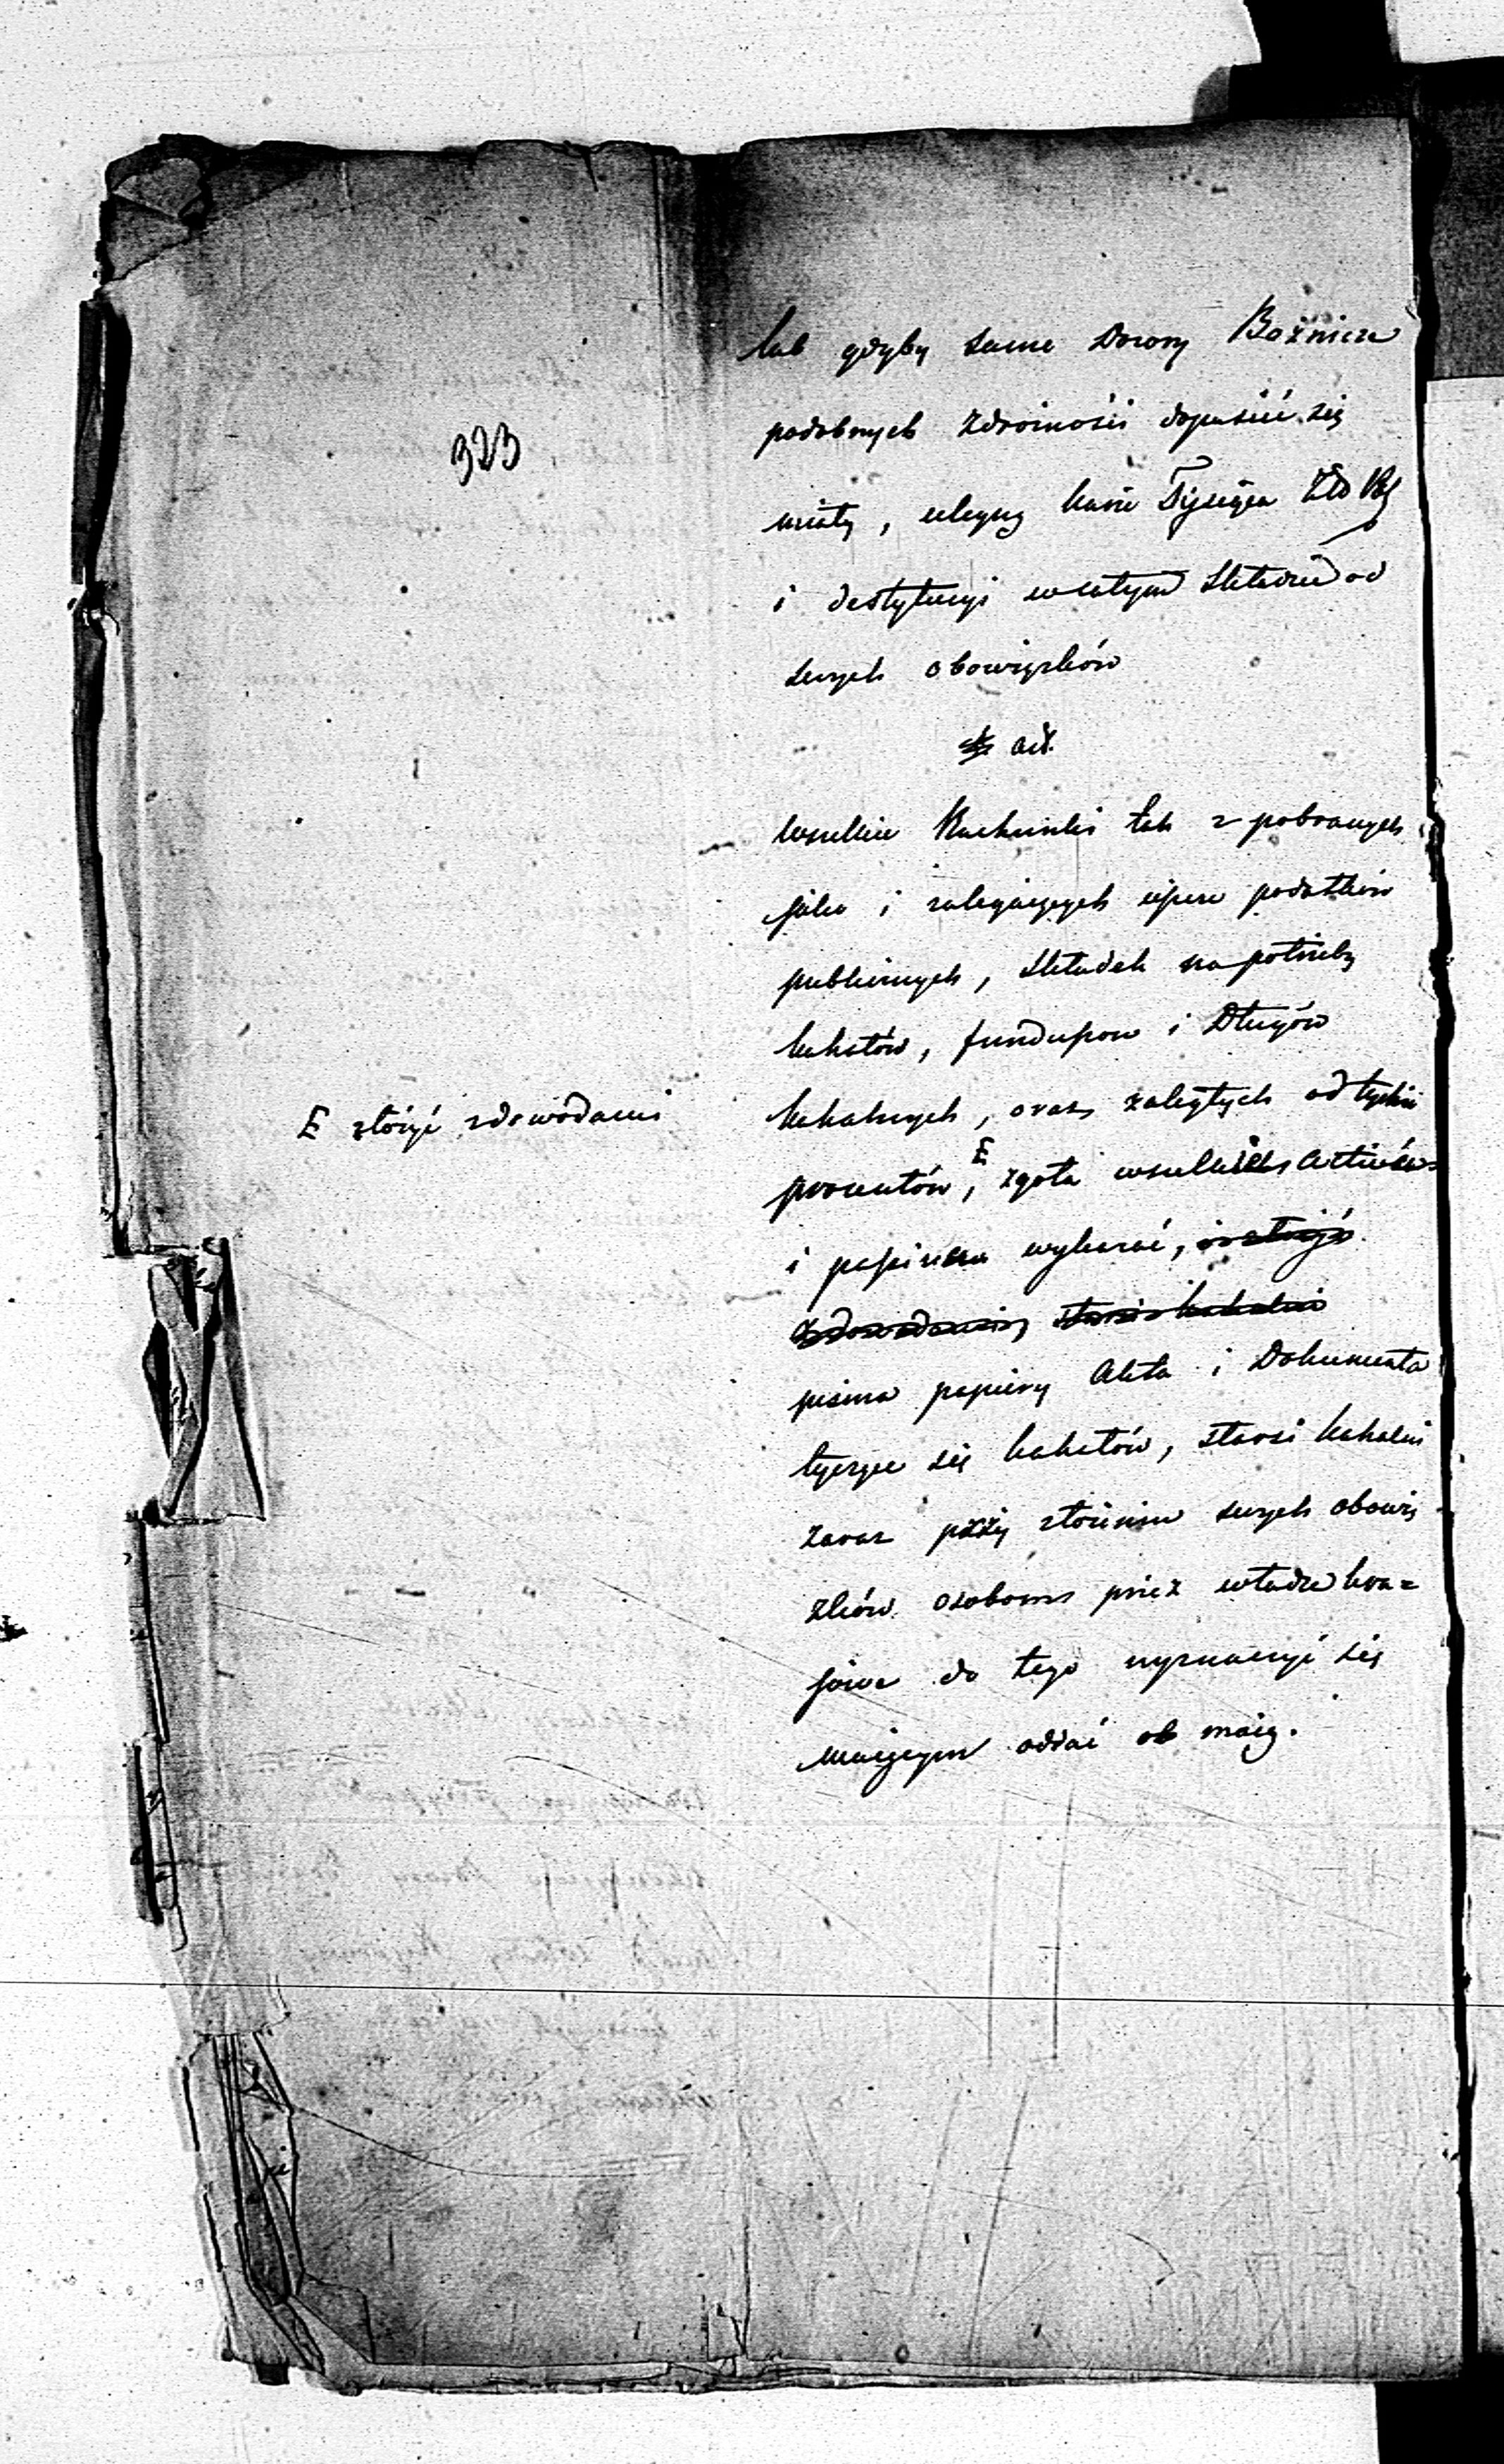 323
lub gdyby same Dozory Bożnicze
podobnych zdrożności dopuścić się
miały, ulegną karze Tysiąca Złł
i destytucyi w całym składzie od
swych obowiązków
art.
Wszelkie Rachunki tak z pobranych
jako i zalegaiących ieszcze podatków
publicznych, składek na potrzeby
kahałów, funduszow i Długów
kahalnych, oraz zaległych od tychże
procentów, zgoła wszelkich
E złożyć z dowodami
i wykazać,
pisma papiery Akta i Dokumenta
tyczące się kahałów, starsi kahalni
zaraz przy złożeniu swych obowią
zków osobom przez władze kra=
jowe do tego wyznaczyć się
maiącym oddać maią.